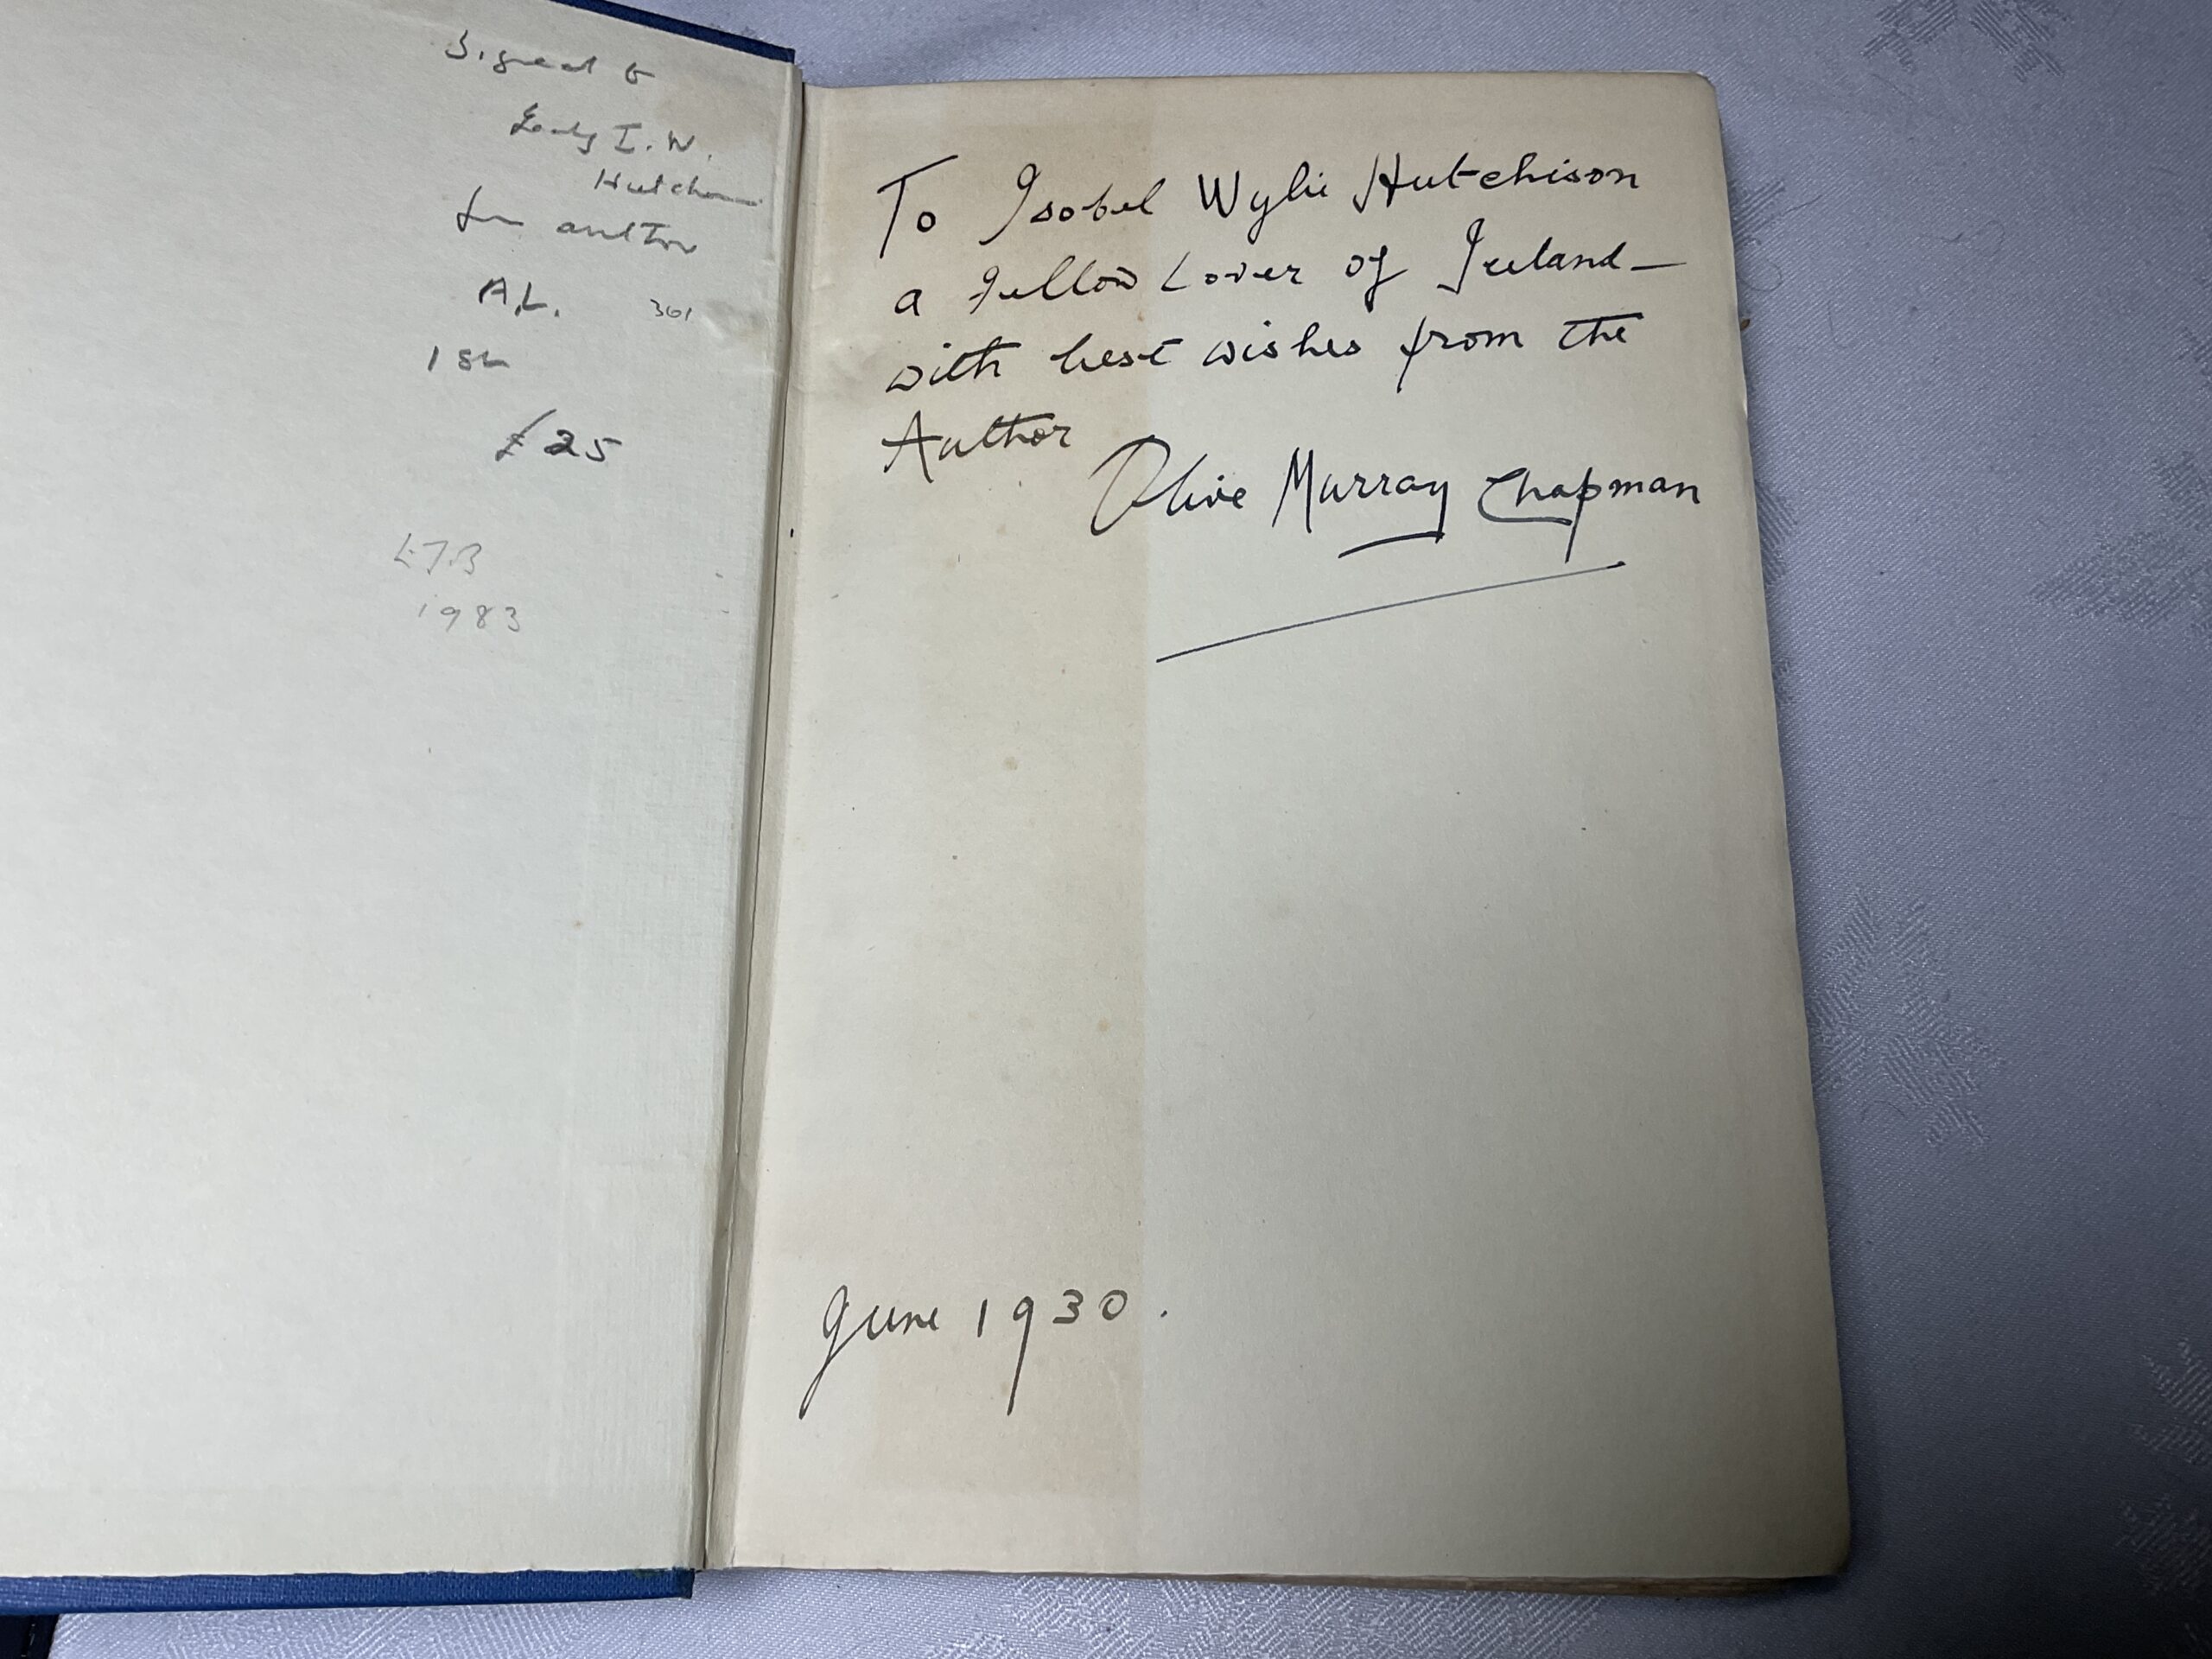 Signed to
I. W.
author
A.L. 301
£25
1983
To Isobel Wylie Hutchison
a fellow Lover of Iceland —
with best wishes from the
Author
Olive Murray Chapman
June 1930.